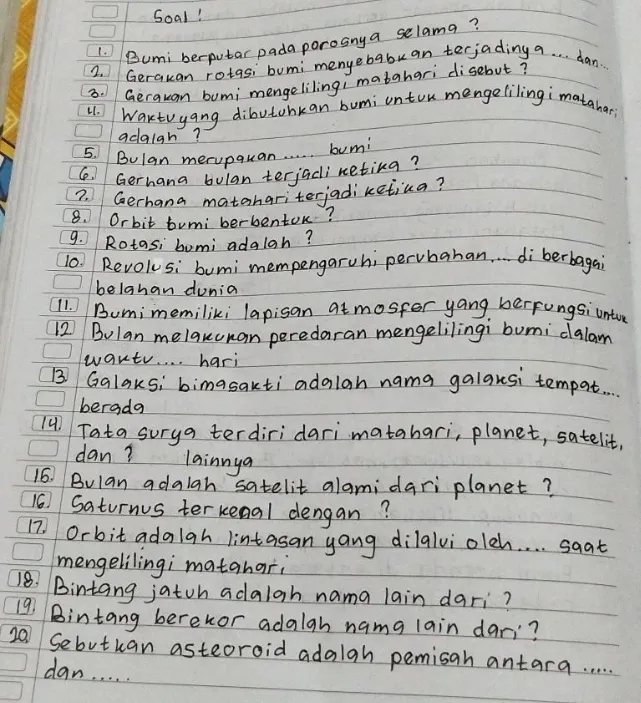 Soal!
1. Bumi berputar pada porosnya selama?
2. Gerakan rotasi bumi menyebabkan terjadinya ... dan...
3. Gerakan bumi mengelilingi matahari disebut?
4. Waktu yang dibutuhkan bumi untuk mengelilingi matahari
adalah?
5. Bulan merupakan ..... bumi
6. Gerhana bulan terjadi ketika?
7. Gerhana matahari terjadi ketika?
8. Orbit bumi berbentuk?
9. Rotasi bumi adalah?
10. Revolusi bumi mempengaruhi perubahan.... di berbagai
belahan dunia
11. Bumi memiliki lapisan atmosfer yang berfungsi untuk
12. Bulan melakukan peredaran mengelilingi bumi dalam
waktu.... hari
13. Galaksi bimasakti adalah nama galaksi tempat....
berada
14. Tata surya terdiri dari matahari, planet, satelit,
dan? lainnya
15. Bulan adalah satelit alami dari planet?
16. Saturnus terkenal dengan?
17. Orbit adalah lintasan yang dilalui oleh.... saat
mengelilingi matahari
18. Bintang jatuh adalah nama lain dari?
19. Bintang berekor adalah nama lain dari?
20. Sebutkan asteoroid adalah pemisah antara .....
dan .....